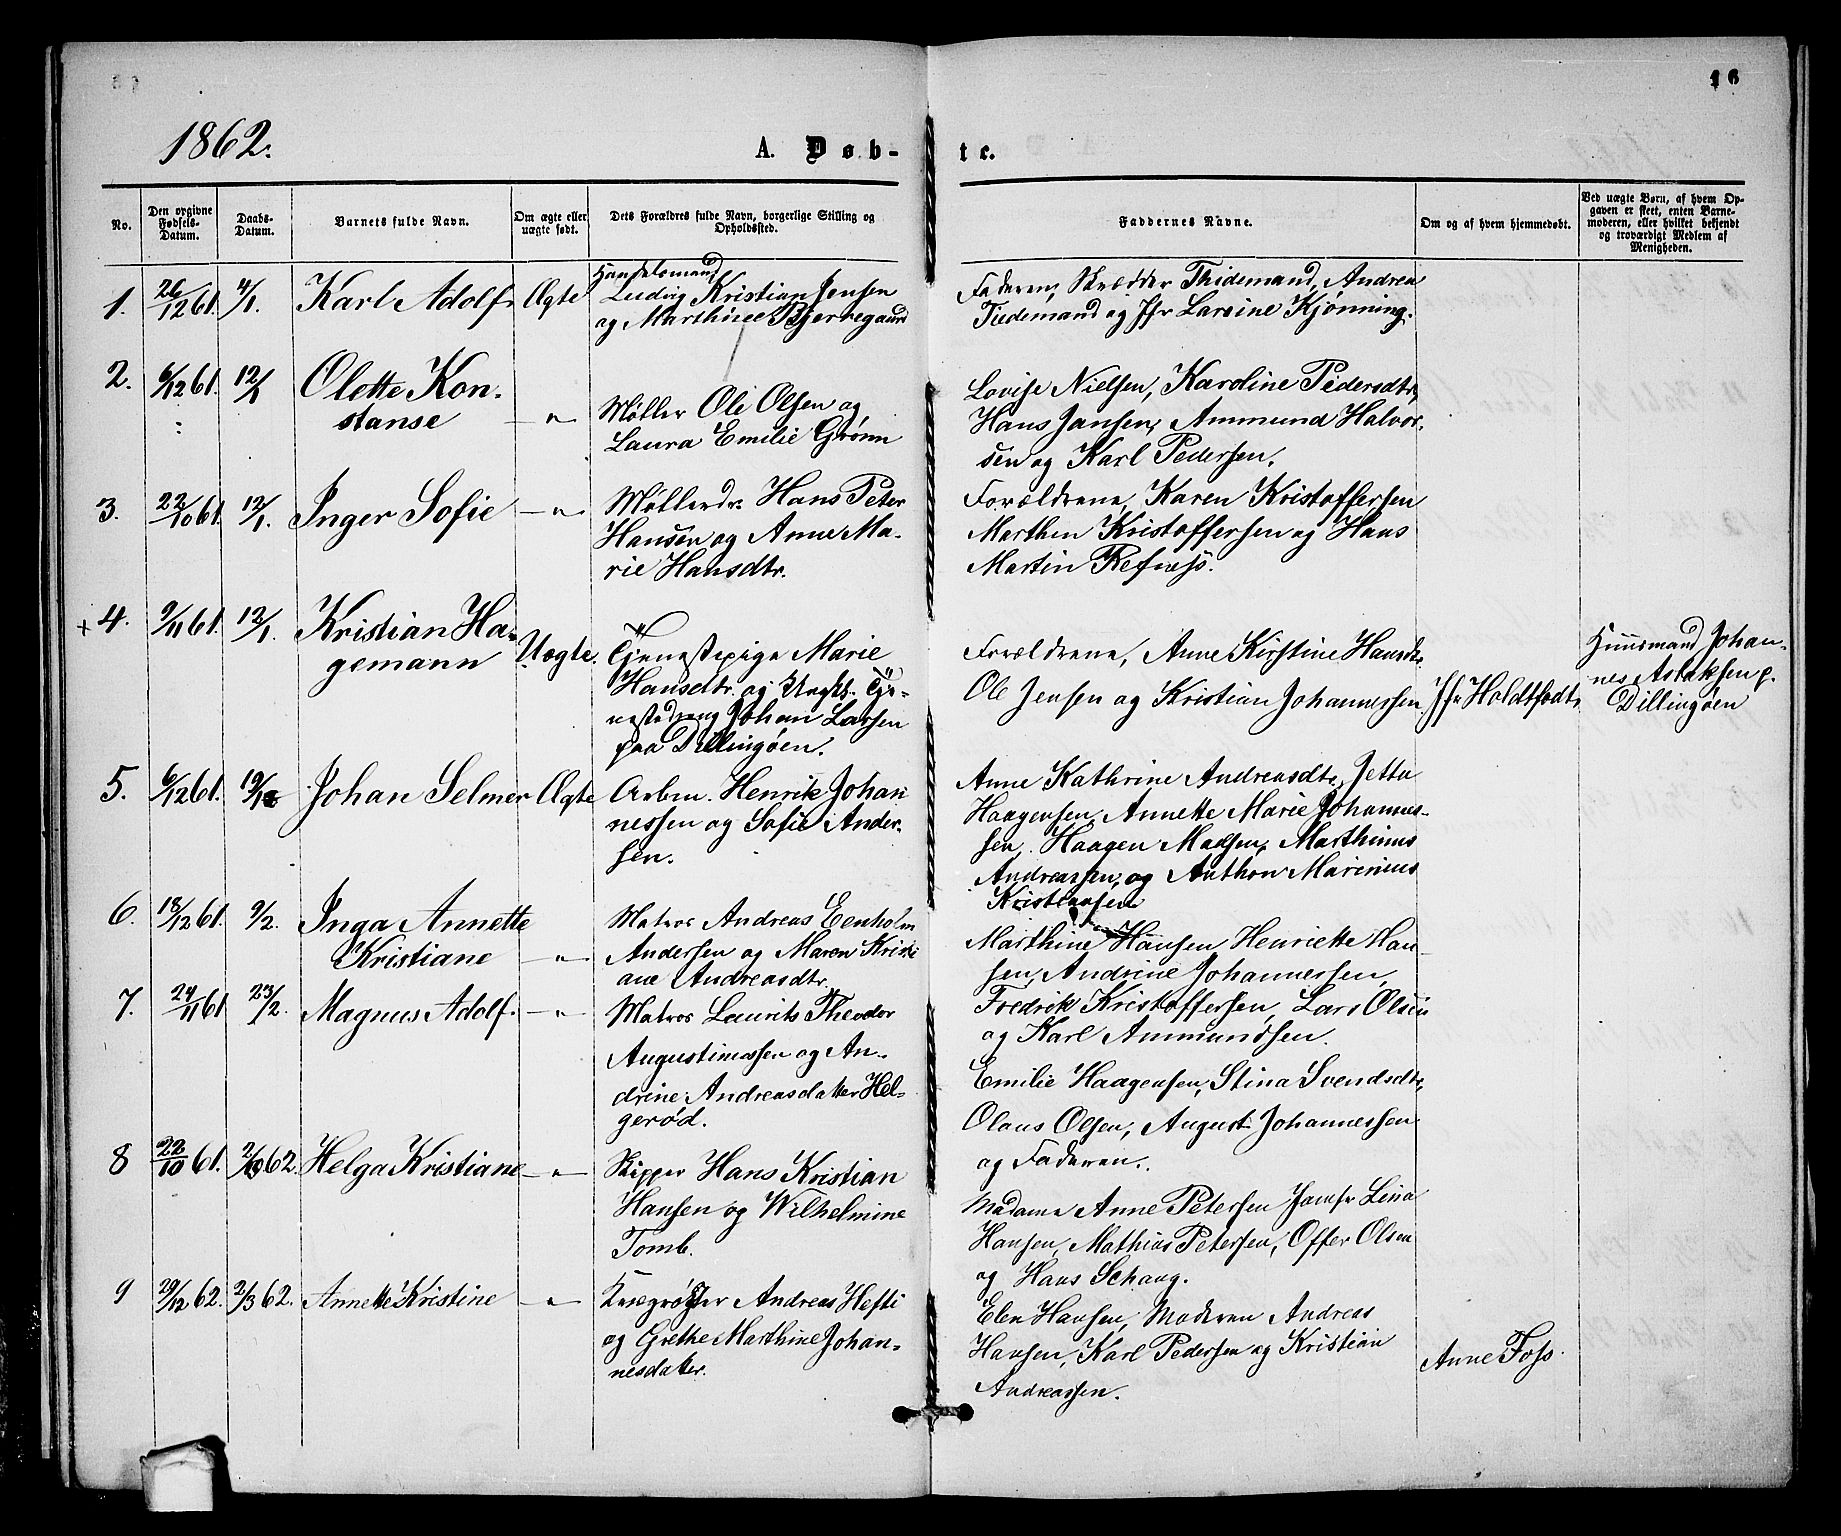 16
1862.
A. Døb-
te.
No.
Den opgivne Fødsels-Datum.
Daabs-Datum.
Barnets fulde Navn.
Om ægte eller uægte født.
Dets Forældres fulde Navn, borgerlige Stilling og Opholdssted.
Faddernes Navne.
Om og af hvem hjemmedøbt.
Ved uægte Børn, af hvem Op-
gaven er skeet, enten Barne-
moderen, eller hvilket bekjendt
og troværdigt Medlem af
Menigheden.
1. 26/12 61. 4/1. Karl Adolf Ægte
Handelsmand
Ludvig Kristian Jensen
og Marthine Bjernegaard
Faderen, Skrædder Thidemand, Andrea
Tiedemand og Jfr Laraine Kjønning.
2. 6/12 61. 12/1 Olette Kon-
stanse — " —
Møller Ole Olsen og
Laura Emilie Grønn
Lovise Nielsen, Karoline Pedersdtr,
Hans Jansen, Ammund Halvor-
sen og Karl Pedersen.
3. 22/10 61. 12/1. Inger Sofie — " —
Møllerdr. Hans Peter
Hansen og Anne Ma-
rie Hansdtr.
Forældrene, Karen Kristoffersen
Marthen Kristoffersen og Hans
Martin Refnæss.
+ 4. 9/11 61. 12/1. Kristian Ha-
gemann Uægte.
Tjenestepige Marie
Hansdtr. og Ungkl. Tje-
nestedreng Johan Larsen
paa Dillingøen.
Forældrene, Anne Kirstine Hansdtr
Ole Jensen og Kristian Johannessen
Jfr Holdtfodt.
Huusmand Johan-
nes Aslaksen p.
Dillingøen
5. 6/12 61. 19/1 Johan Selmer Ægte
Arbm. Henrik Johan
nessen og Sofie Ander-
sen.
Anne Kathrine Andreasdtr, Jetta
Haagensen, Annette Marie Johannes-
sen, Haagen Madsen, Marthinus
Andreassen, og Anthon Marinius
Kristiansen
6. 18/12 61. 9/2. Inga Annette
Kristiane — " —
Matros Andreas Eenholm
Andersen og Maren Kristi
ane Andreasdtr.
Marthine Hansen Henriette Han-
sen, Andrine Johannessen,
Fredrik Kristoffersen, Lars Olsen
og Karl Ammundsen.
7. 24/11 61 23/2. Magnus Adolf. — " —
Matros Laurits Theodor
Augustinussen og An-
drine Andreasdatter Hel-
gerød.
Emilie Haagensen, Stina Svendsdtr,
Olaus Olsen, August Johannessen
og Faderen.
8 22/10 61. 2/3 62. Helga Kristiane — " —
Skipper Hans Kristian
Hansen og Wilhelmine
Tomb.
Madame Anne Petersen Jomfr Lina
Hansen, Mathias Petersen, Offer Olsen
og Hans Schaug.
9 29/12 62. 2/3 62. Annette Kristine — " —
Andreas Hefti
og Grethe Marthine Johan-
nesdatter.
Elen Hansen, Moderen Andreas
Hansen, Karl Pedersen og Kristian
Andreassen.
Anne Foss.